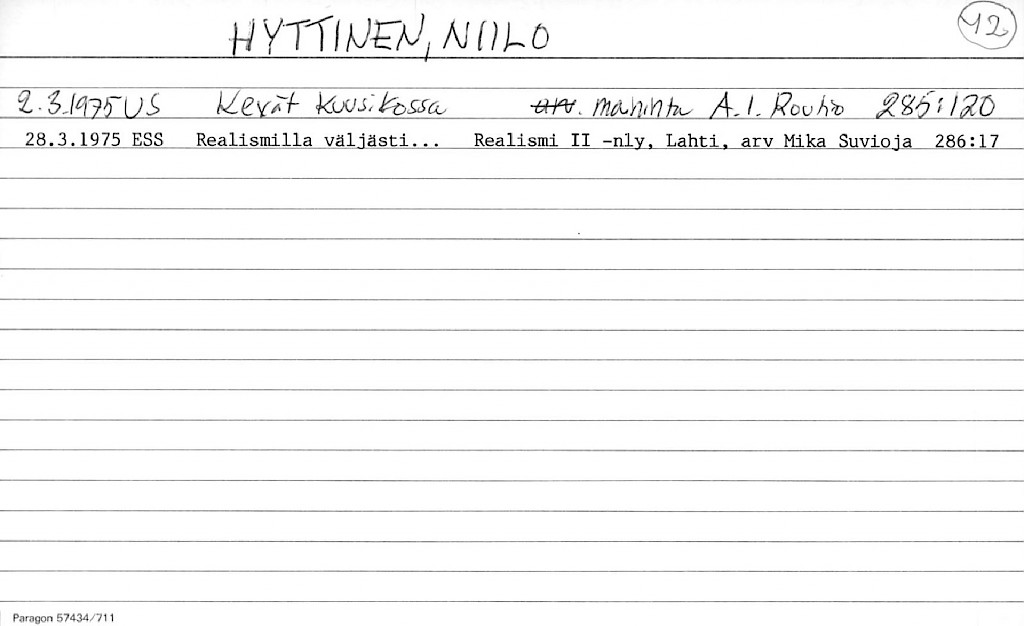 HYTTINEN, NIILO 42
2.3.1975 US Kevät kuusikossa arv. maininta A.I. Routio 285:120
28.3.1975 ESS Realismilla väljästi... Realismi II -nly, Lahti, arv Mika Suvioja 286:17
Paragon 57434/711